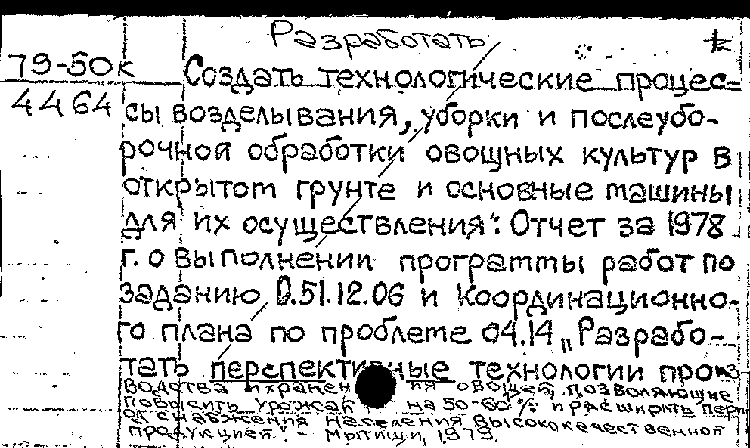 Разработать
79-50к
Создать технологические процес=
4464
сы возделывания, уборки и послеубо-
рочной обработки овощных культур в
открытом грунте и основные машины
для их осуществления". Отчет за 1978
г. о выполнении программы работ по
заданию 0.51.12.06 и Координационно-
го плана по проблеме 04.14 „Разрабо-
тать перспективные технологии произ
водства и хранения овощей, позволяющие
повысить урожай на 50-60% и расширить
снабжения населения высококачественной
продукцией". - Мытищи, 1979.